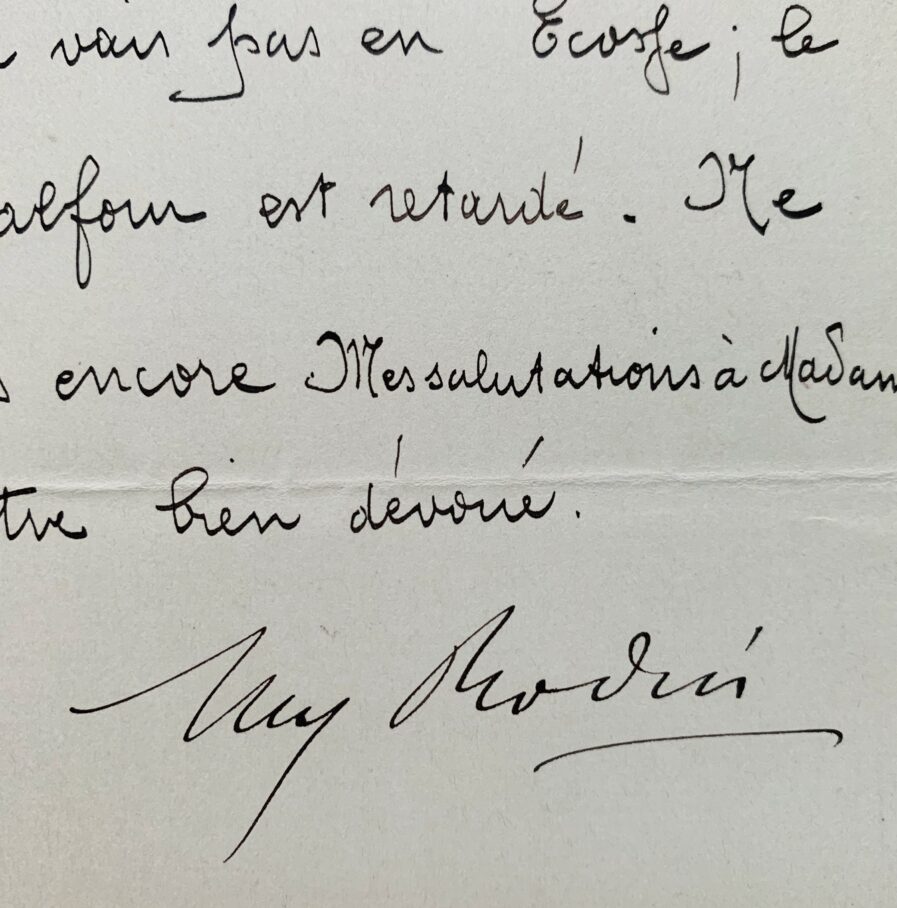 vais pas en Ecosse ; le
alfour est retardé . Me
s encore Mes salutations à Madam
tre bien dévoué.
Aug Rodin